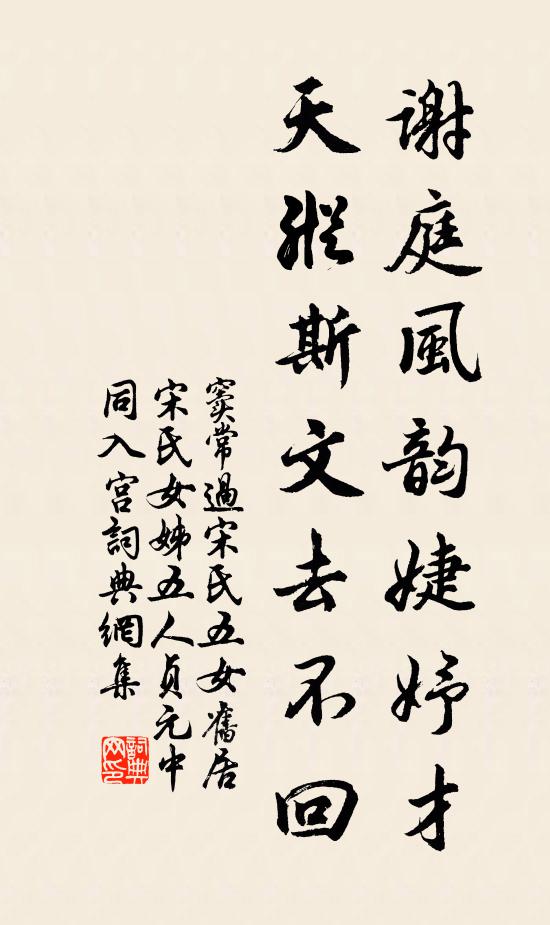 謝庭風韵婕妤才
天縱斯文去不回
竇常過宋氏五女舊居
宋氏女姊五人貞元中
同入宮詞典網集
詞典
网印